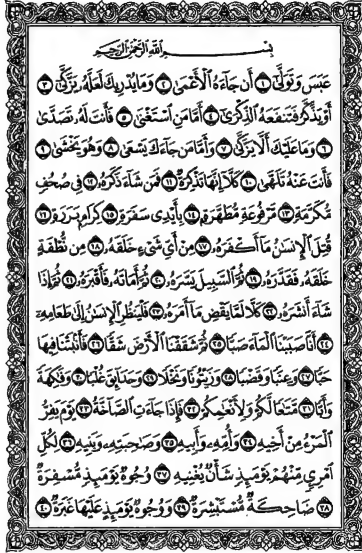 بِسْمِ اللَّهِ الرَّحْمَٰنِ الرَّحِيمِ
عَبَسَ وَتَوَلَّىٰ ١ أَن جَاءَهُ الْأَعْمَىٰ ٢ وَمَا يُدْرِيكَ لَعَلَّهُ يَزَّكَّىٰ ٣
أَوْ يَذَّكَّرُ فَتَنفَعَهُ الذِّكْرَىٰ ٤ أَمَّا مَنِ اسْتَغْنَىٰ ٥ فَأَنتَ لَهُ تَصَدَّىٰ
٦ وَمَا عَلَيْكَ أَلَّا يَزَّكَّىٰ ٧ وَأَمَّا مَن جَاءَكَ يَسْعَىٰ ٨ وَهُوَ يَخْشَىٰ ٩
فَأَنتَ عَنْهُ تَلَهَّىٰ ١٠ كَلَّا إِنَّهَا تَذْكِرَةٌ ١١ فَمَن شَاءَ ذَكَرَهُ ١٢ فِي صُحُفٍ
مُّكَرَّمَةٍ ١٣ مَّرْفُوعَةٍ مُّطَهَّرَةٍ ١٤ بِأَيْدِي سَفَرَةٍ ١٥ كِرَامٍ بَرَرَةٍ ١٦
قُتِلَ الْإِنسَانُ مَا أَكْفَرَهُ ١٧ مِنْ أَيِّ شَيْءٍ خَلَقَهُ ١٨ مِن نُّطْفَةٍ
خَلَقَهُ فَقَدَّرَهُ ١٩ ثُمَّ السَّبِيلَ يَسَّرَهُ ٢٠ ثُمَّ أَمَاتَهُ فَأَقْبَرَهُ ٢١ ثُمَّ إِذَا
شَاءَ أَنشَرَهُ ٢٢ كَلَّا لَمَّا يَقْضِ مَا أَمَرَهُ ٢٣ فَلْيَنظُرِ الْإِنسَانُ إِلَىٰ طَعَامِهِ
٢٤ أَنَّا صَبَبْنَا الْمَاءَ صَبًّا ٢٥ ثُمَّ شَقَقْنَا الْأَرْضَ شَقًّا ٢٦ فَأَنبَتْنَا فِيهَا
حَبًّا ٢٧ وَعِنَبًا وَقَضْبًا ٢٨ وَزَيْتُونًا وَنَخْلًا ٢٩ وَحَدَائِقَ غُلْبًا ٣٠ وَفَاكِهَةً
وَأَبًّا ٣١ مَّتَاعًا لَّكُمْ وَلِأَنْعَامِكُمْ ٣٢ فَإِذَا جَاءَتِ الصَّاخَّةُ ٣٣ يَوْمَ يَفِرُّ
الْمَرْءُ مِنْ أَخِيهِ ٣٤ وَأُمِّهِ وَأَبِيهِ ٣٥ وَصَاحِبَتِهِ وَبَنِيهِ ٣٦ لِكُلِّ
امْرِئٍ مِّنْهُمْ يَوْمَئِذٍ شَأْنٌ يُغْنِيهِ ٣٧ وُجُوهٌ يَوْمَئِذٍ مُّسْفِرَةٌ
٣٨ ضَاحِكَةٌ مُّسْتَبْشِرَةٌ ٣٩ وَوُجُوهٌ يَوْمَئِذٍ عَلَيْهَا غَبَرَةٌ ٤٠